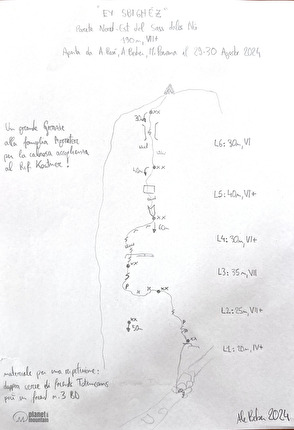 "EY SBIGHÈZ"
Parete Nord-Est del Sass delle Nö
190m, VII+
Aperta da A. Beber, M. el 29-30 Agosto 2024
Un grande Grazie
alla famiglia
per la calorosa accoglienza
al Rif. Kostner!
30m
40m
60m
50m
L6: 30m, VI
L5: 40m, VI+
L4: 30m, VI+
L3: 35m, VII
L2: 25m, VII+
L1: 70m, IV+
materiale per una ripetizione:
doppia serie di friends Totemcams
più un friend n.3 BD
planet mountain
2024